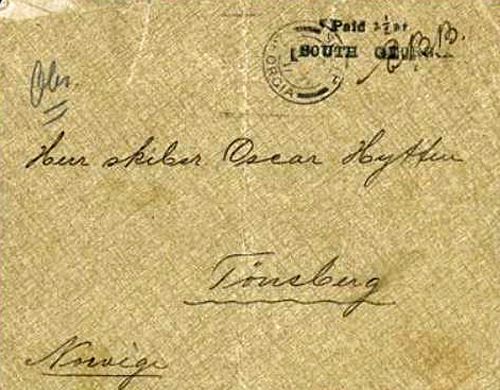 Paid 2½ Pt
SOUTH GEORG
Obs.
Herr skiber Oscar Hytten
Tönsberg
Norvége